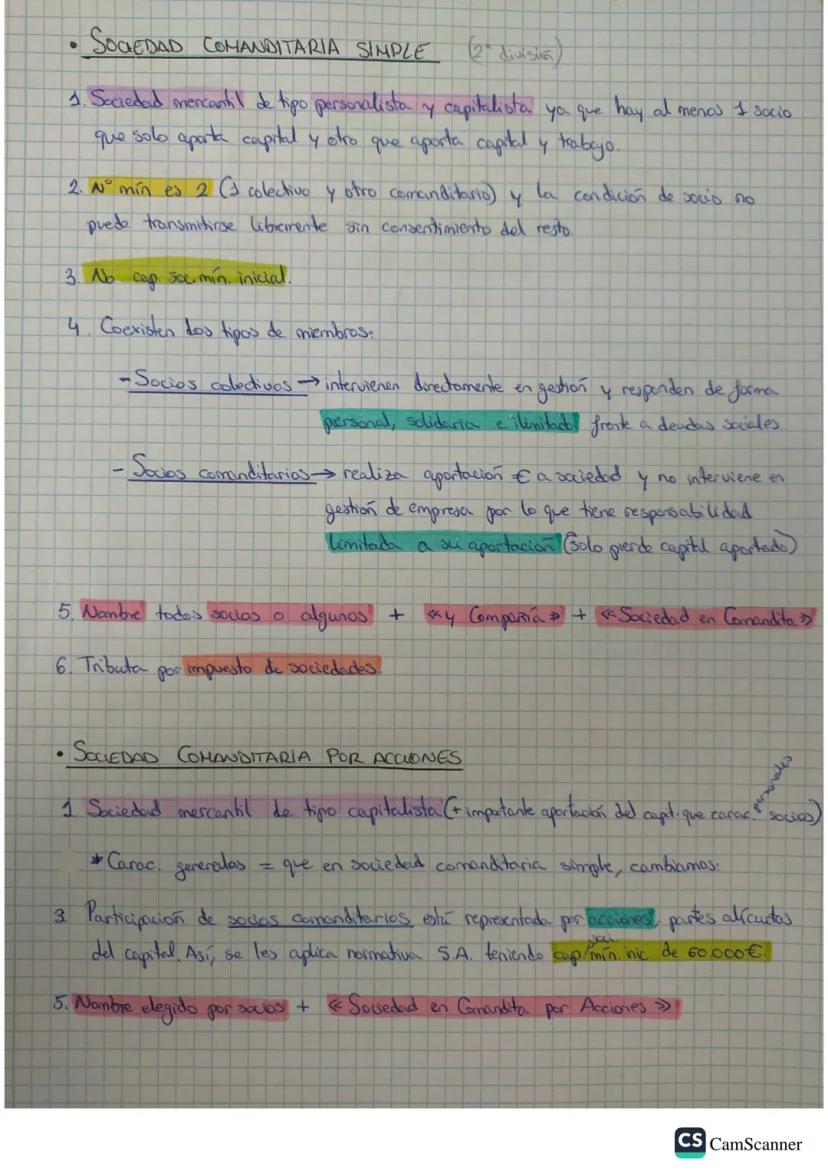 • SOCIEDAD COMANDITARIA SIMPLE (2ª división)
1. Sociedad mercantil de tipo personalista y capitalista ya que hay al menos 1 socio
que solo aporta capital y otro que aporta capital y trabajo.
2. Nº mín es 2 (1 colectivo y otro comanditario) y la condición de socio no
puede transmitirse libremente sin consentimiento del resto.
3. No cap. soc. mín. inicial.
4. Coexisten dos tipos de miembros:
- Socios colectivos → intervienen directamente en gestión y responden de forma
personal, solidaria e ilimitada frente a deudas sociales
- Socios comanditarios → realiza aportación € a sociedad y no interviene en
gestión de empresa por lo que tiene responsabilidad
limitada a su aportación (solo pierde capital aportado)
5. Nombre todos socios o algunos + «y Compañía» + «Sociedad en Comandita»
6. Tributa por impuesto de sociedades.
• SOCIEDAD COMANDITARIA POR ACCIONES
1. Sociedad mercantil de tipo capitalista (+ importante aportación del capt. que carac. personales socios)
* Carac. generales = que en sociedad comanditaria simple, cambiamos:
3. Participación de socios comanditarios está representada por acciones, partes alícuotas
del capital. Así, se les aplica normativa S.A. teniendo cap. soc. mín. inic de 60.000€.
5. Nombre elegido por socios + «Sociedad en Comandita por Acciones»
CS CamScanner